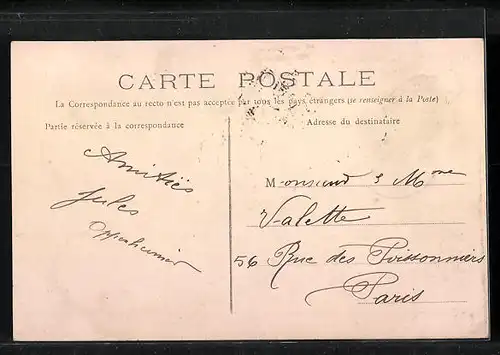 CARTE POSTALE
La Correspondance au recto n'est pas acceptée par tous les pays étrangers (se renseigner à la Poste)
Partie réservée à la correspondance
Adresse du destinataire
Amitiés
Jules
Oppenheimer
Monsieur & Mme
Valette
56 Rue des Poissonniers
Paris